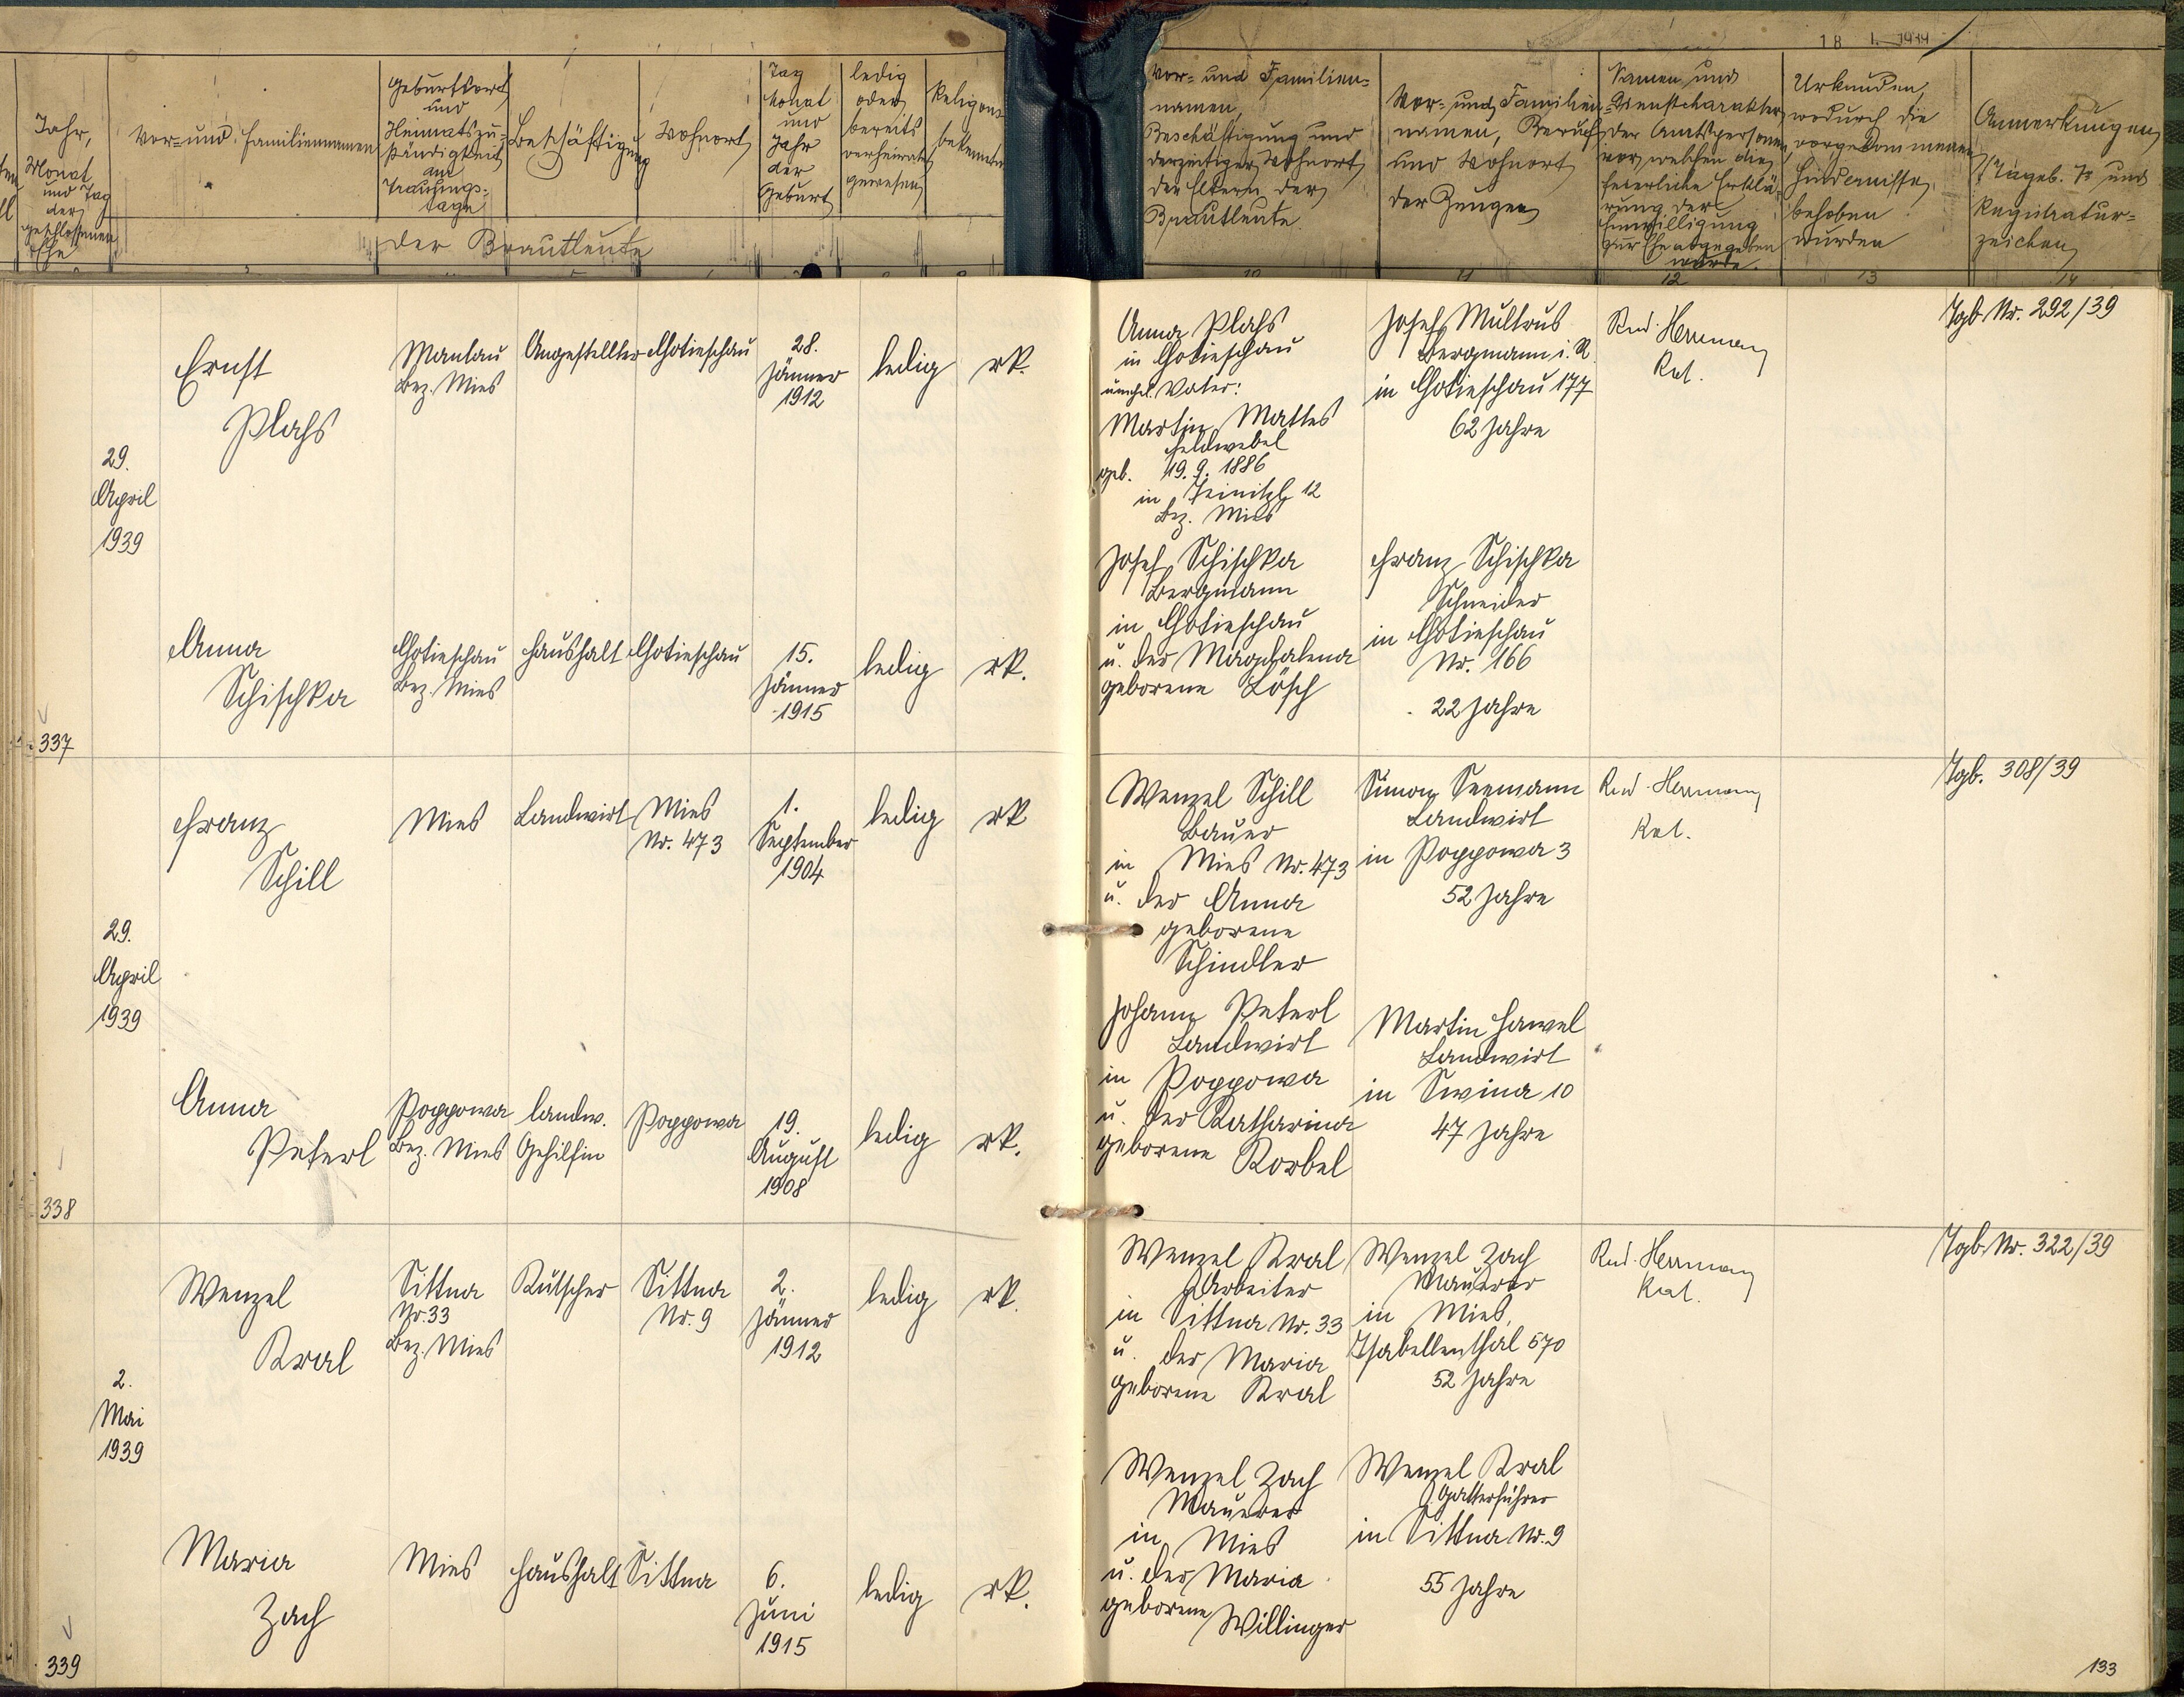 18 1. 1944
Jahr,
Monat
und Tag
der
geschlossenen
Ehe
Vor- und Familiennamen
Geburtsort
und
Heimatszu-
ständigkeit
am
Trauungs-
tage
Beschäftigung
Wohnort
Tag
Monat
und
Jahr
der
Geburt
ledig
oder
bereits
verheiratet
gewesen
Religions
bekenntnis
der Brautleute
Vor- und Familien-
namen,
Beschäftigung und
derzeitiger Wohnort
der Eltern der
Brautleute.
Vor- und Familien-
namen, Beruf
und Wohnort
der Zeugen
Namen und
Dienstcharakter
der Amtspersonen,
vor welchen die
feierliche Erklä-
rung der
Einwilligung
zur Ehe abgegeben
wurde.
Urkunden,
wodurch die
vorgekommenen
Hindernisse
behoben
wurden
Anmerkungen
Tageb. Z und
Registratur-
zeichen
10 11 12 13 14
337
29.
April
1939
Ernst
Plahs
Mantau
Bez. Mies
Angestellter
Chotieschau
28.
Jänner
1912
ledig
rk.
Anna Plahs
in Chotieschau
unehel. Vater:
Martin Mattes
Feldwebel
geb. 19.9.1886
in 12
Bez. Mies
Josef Multrus
Bergmann i. R.
in Chotieschau 177
62 Jahre
Rud. Herrmann
Rat.
Tgb. Nr. 292/39
Anna
Schischka
Chotieschau
Bez. Mies
Haushalt
Chotieschau
15.
Jänner
1915
ledig
rk.
Josef Schischka
Bergmann
in Chotieschau
u. der Magdalena
geborene Lösch
Franz Schischka
Schneider
in Chotieschau
Nr. 166
22 Jahre
338
29.
April
1939
Franz
Schill
Mies
Landwirt
Mies
Nr. 473
1.
September
1904
ledig
rk
Wenzel Schill
Bauer
in Mies Nr. 473
u. der Anna
geborene
Schindler
Simon Seemann
Landwirt
in Poppowa 3
52 Jahre
Rud. Herrmann
Rat.
Tgb. 308/39
Anna
Peterl
Poppowa
Bez. Mies
landw.
Gehilfin
Poppowa
19.
August
1908
ledig
rk.
Johann Peterl
Landwirt
in Poppowa
u. der Katharina
geborene Korbel
Martin Hawel
Landwirt
in Swina 10
47 Jahre
339
2.
Mai
1939
Wenzel
Kral
Sittna
Nr. 33
Bez. Mies
Kutscher
Sittna
Nr. 9
2.
Jänner
1912
ledig
rk.
Wenzel Kral
Arbeiter
in Sittna Nr. 33
u. der Maria
geborene Kral
Wenzel Zach
Maurer
in Mies,
Isabellenthal 570
52 Jahre
Rud. Herrmann
Rat.
Tgb. Nr. 322/39
Maria
Zach
Mies
Haushalt
Sittna
6.
Juni
1915
ledig
rk.
Wenzel Zach
Maurer
in Mies
u. der Maria
geborene Willinger
Wenzel Kral
Gatterführer
in Sittna Nr. 9
55 Jahre
133